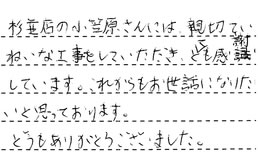 杉並店の小笠原さんには、親切てい
ねいな工事をしていただき、とても感謝
しています。これからもお世話になりた
いと思っております。
どうもありがとうございました。